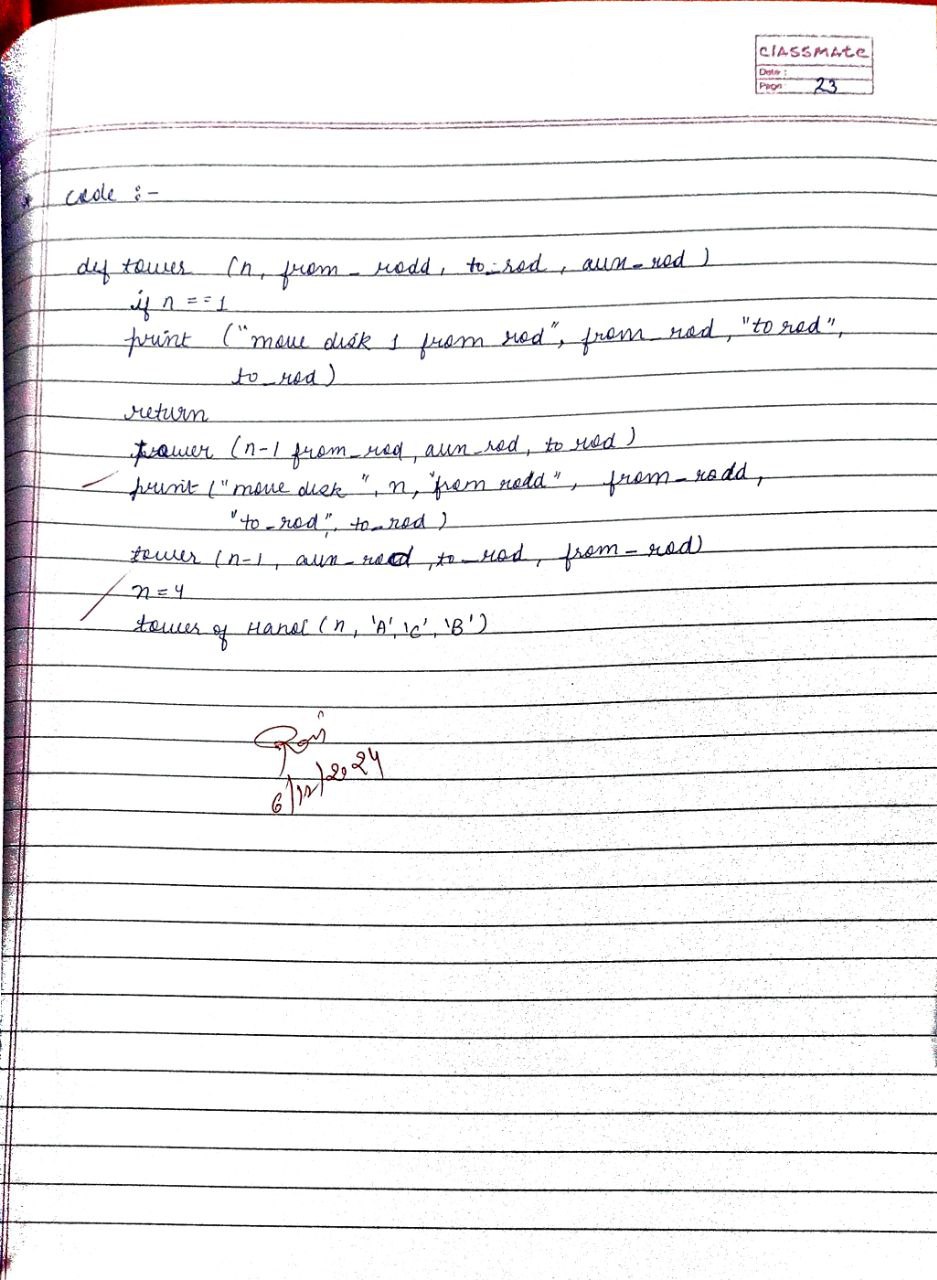 classmate
Date :
Page 23
code :-
def tower (n, from_rodd, to_rod, aun_rod)
if n == 1
print ("move disk 1 from rod", from_rod, "to rod",
to_rod)
return
tower (n-1 from_rod, aun_rod, to rod)
print ("move disk ", n, "from rodd", from_rodd,
"to_rod", to_rod)
tower (n-1, aun_rod, to_rod, from_rod)
n=4
tower of Hanoi (n, 'A', 'C', 'B')
6/12/2024